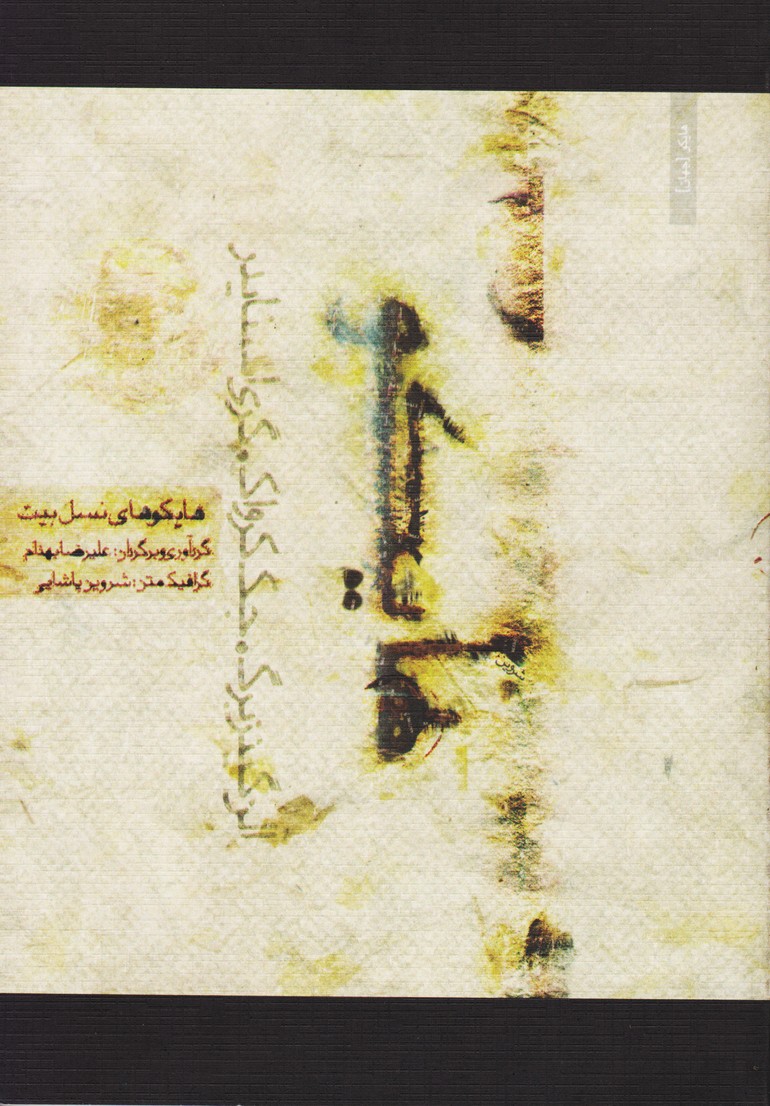 هایکو [جهان]
هایکو
شروین
آلن گینزبرگ . جک کرواک . گری اسنایدر
هایکوهای نسل بیت
گردآوری و برگردان: علیرضا بهنام
گرافیک متن: شروین پاشایی